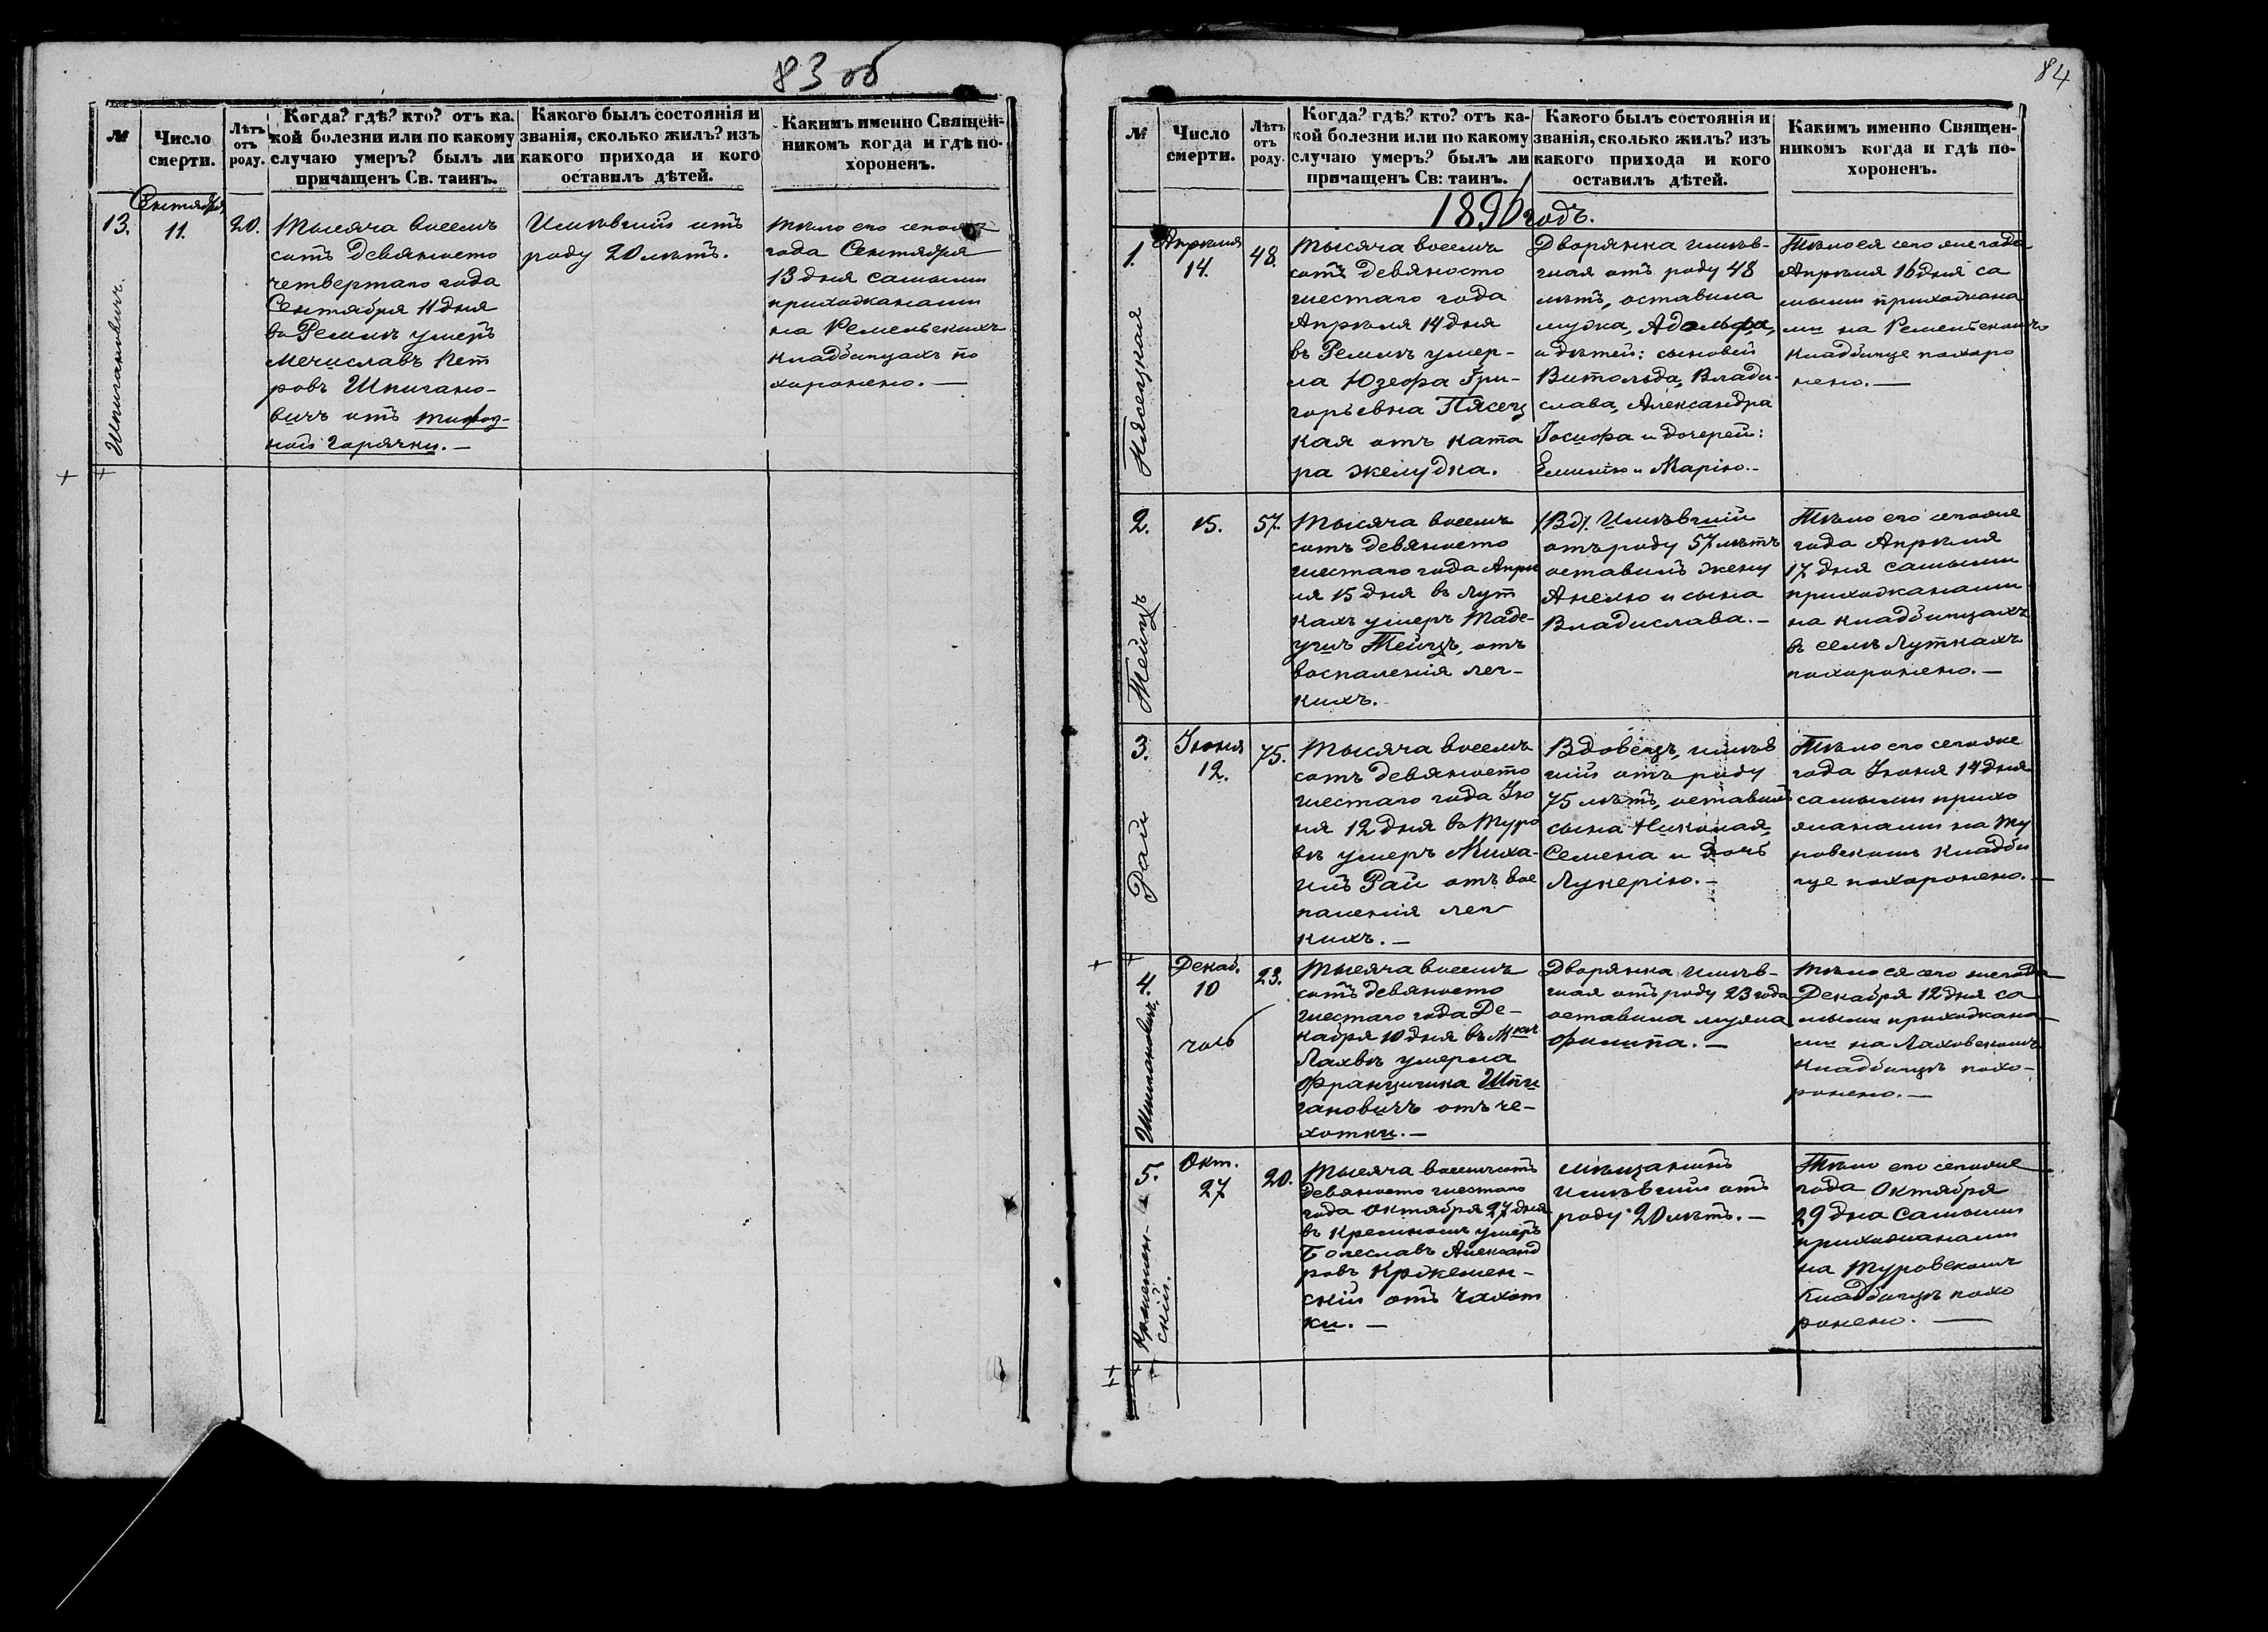 83 об
№
Число
смерти.
Лѣтъ
отъ
роду.
Когда? гдѣ? кто? отъ ка-
кой болезни или по какому
случаю умеръ? былъ ли
причащенъ Св. таинъ.
Какого былъ состоянія и
званія, сколько жилъ? изъ
какого прихода и кого
оставилъ дѣтей.
Какимъ именно Священ-
никомъ когда и гдѣ по-
хороненъ.
13.
Шпигановичъ.
Сентября
11.
20.
Тысяча восемь
сотъ девяносто
четвертаго года
Сентября 11 дня
въ Ремлѣ умеръ
Мечиславъ Пет
ровъ Шпигано-
вичъ отъ тифоз-
ной горячки. —
Имѣвшій отъ
роду 20 лѣтъ.
Тѣло его сегоже
года Сентября
13 дня самыми
прихожанами
на Ремельскихъ
кладбищахъ по
хоронено. —
84
№
Число
смерти.
Лѣтъ
отъ
роду.
Когда? гдѣ? кто? отъ ка-
кой болезни или по какому
случаю умеръ? былъ ли
причащенъ Св: таинъ.
Какого былъ состоянія и
званія, сколько жилъ? изъ
какого прихода и кого
оставилъ дѣтей.
Какимъ именно Священ-
никомъ когда и гдѣ по-
хороненъ.
1896 годъ.
1.
Пясецкая
Апрѣля
14.
48.
Тысяча восемь
сотъ девяносто
шестаго года
Апрѣля 14 дня
въ Ремлѣ умер-
ла Юзефа Гри-
горьевна Пясец
кая отъ ката
ра желудка.
Дворянка имѣв-
шая отъ роду 48
лѣтъ, оставила
мужа, Адольфа,
и дѣтей: сыновей
Витольда, Влади-
слава, Александра
Іосифа и дочерей:
Емилію и Марію. -
Тѣло ея сего же года
Апрѣля 16 дня са
мыми прихожана
ми на Ремельскомъ
кладбище похоро
нено. —
2.
Тейцъ
15.
57.
Тысяча восемь
сотъ девяносто
шестаго года Апрѣ
ля 15 дня въ Лут
кахъ умеръ Таде-
ушъ Тейцъ, отъ
воспаленія лег-
кихъ.
(Вд). Имѣвшій
отъ роду 57 лѣтъ
оставилъ жену
Анелю и сына
Владислава. -
Тѣло его сегоже
года Апрѣля
17 дня самыми
прихожанами
на кладбищахъ
въ селѣ Луткахъ
похоронено. —
3.
Рай
Іюня
12.
75.
Тысяча восемь
сотъ девяносто
шестаго года Ію
ня 12 дня въ Туро
вѣ умеръ Миха-
илъ Рай отъ вос
паленія лег
кихъ. —
Вдовецъ, имѣв
шій отъ роду
75 лѣтъ, оставилъ
сына Николая,
Семена и дочь
Лукерію. -
Тѣло его сегоже
года Іюня 14 дня
самыми прихо
жанами на Ту
ровскомъ кладби
ще похоронено. —
4.
Шпигановичъ.
Декаб.
10
23.
Тысяча восемь
сотъ девяносто
шестаго года Де-
кабря 10 дня въ Мкѣ
Лахвѣ умерла
Францишка Шпи
гановичъ отъ че-
хотки. —
Дворянка имѣв-
шая отъ роду 23 года
оставила мужа
Филипа. —
Тѣло ея сего же года
Декабря 12 дня са
мыми прихожана
ми на Лаховскомъ
кладбищѣ похо-
ронено. —
5.
Кржемен-
скій.
Окт.
27
20.
Тысяча восемьсотъ
девяносто шестаго
года октября 27 дня
въ Кремномъ умеръ
Болеславъ Александ
ровъ Кржемен-
скій отъ чахот
ки. —
мѣщанинъ
имѣвшій отъ
роду 20 лѣтъ. —
Тѣло его сегоже
года Октября
29 дна самыми
прихожанами
на Туровскомъ
кладбищѣ похо
ронено. —